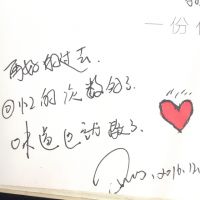 一份
再好的过去
回忆的次数多了
味道也就散了.
2016.12